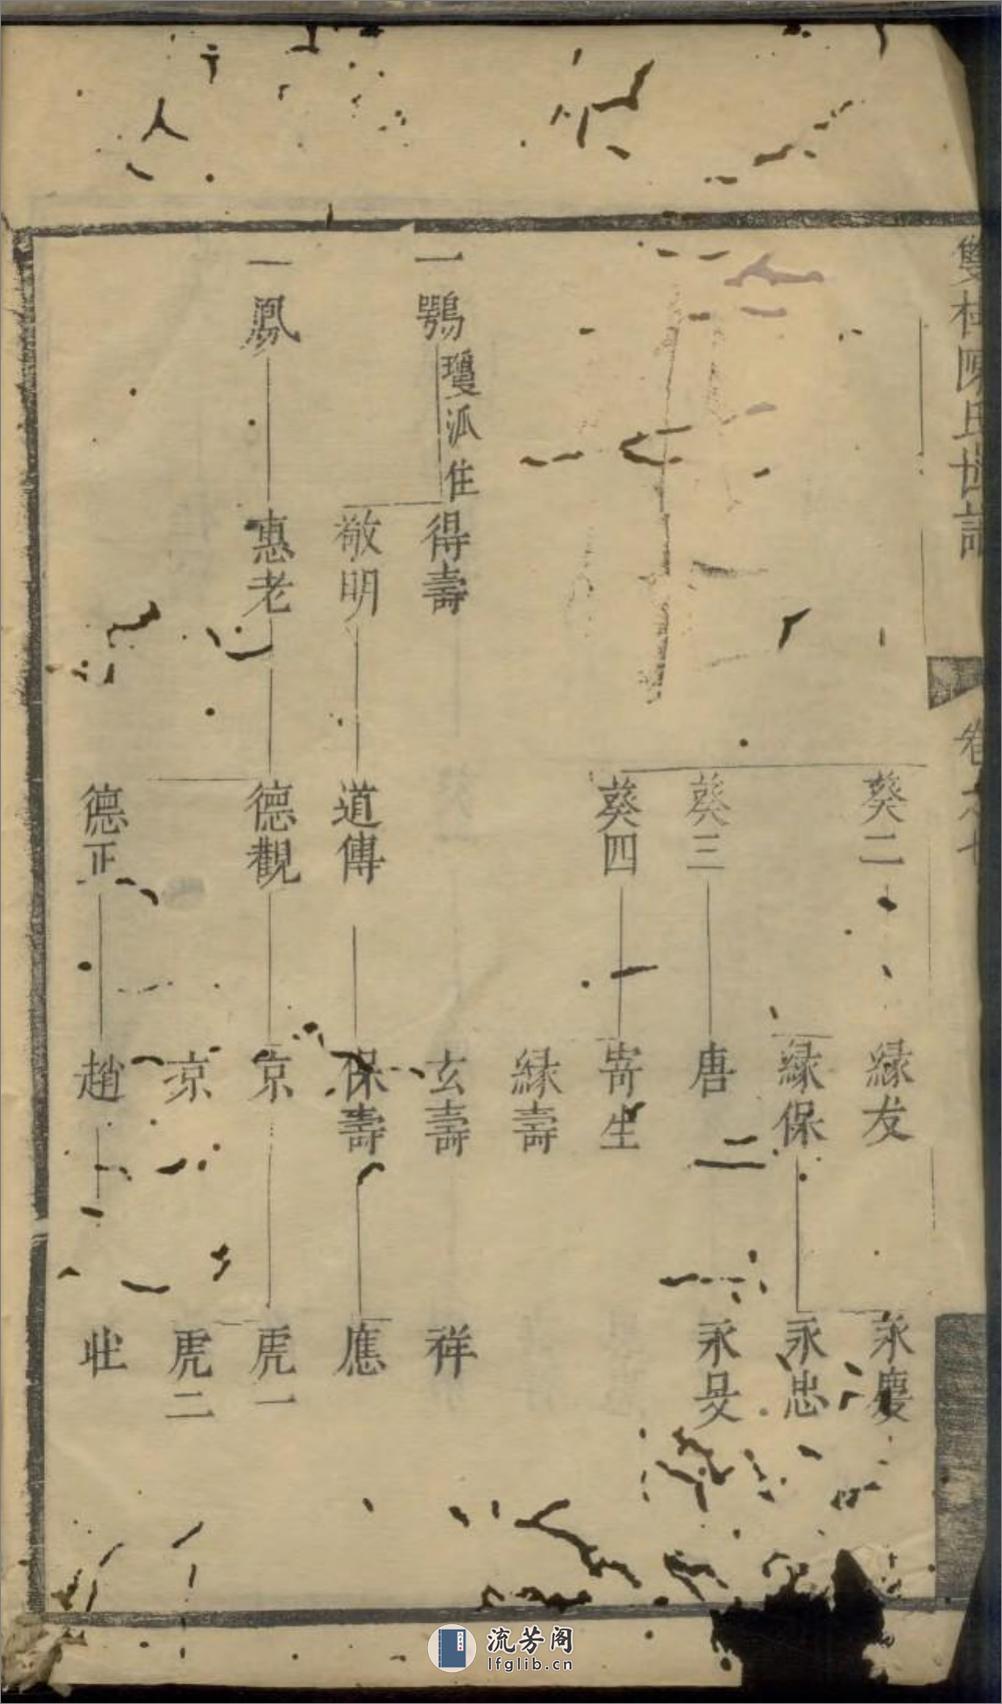 雙桂陳氏世譜
卷之七
一鶚
瓊派住
一鳳
得壽
敬明
惠老
葵二
葵三
葵四
道傳
德觀
德正
緣友
緣保
唐
寄生
緣壽
玄壽
保壽
京
京
趙
永慶
永忠
永旻
祥
應
虎一
虎二
壯
流芳阁
lfglib.cn